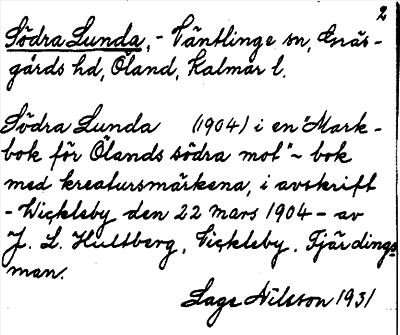 2
Södra Lunda, - Väntlinge sn, Gräs-
gårds hd, Öland, Kalmar l.
Södra Lunda (1904) i en "Mark-
bok för Ölands södra mot" - bok
med kreatursmärkena, i avskrift
- Wickleby den 22 mars 1904 - av
J. L. Hultberg, Vickleby. Fjärdings
man.
Lage Nilsson 1931